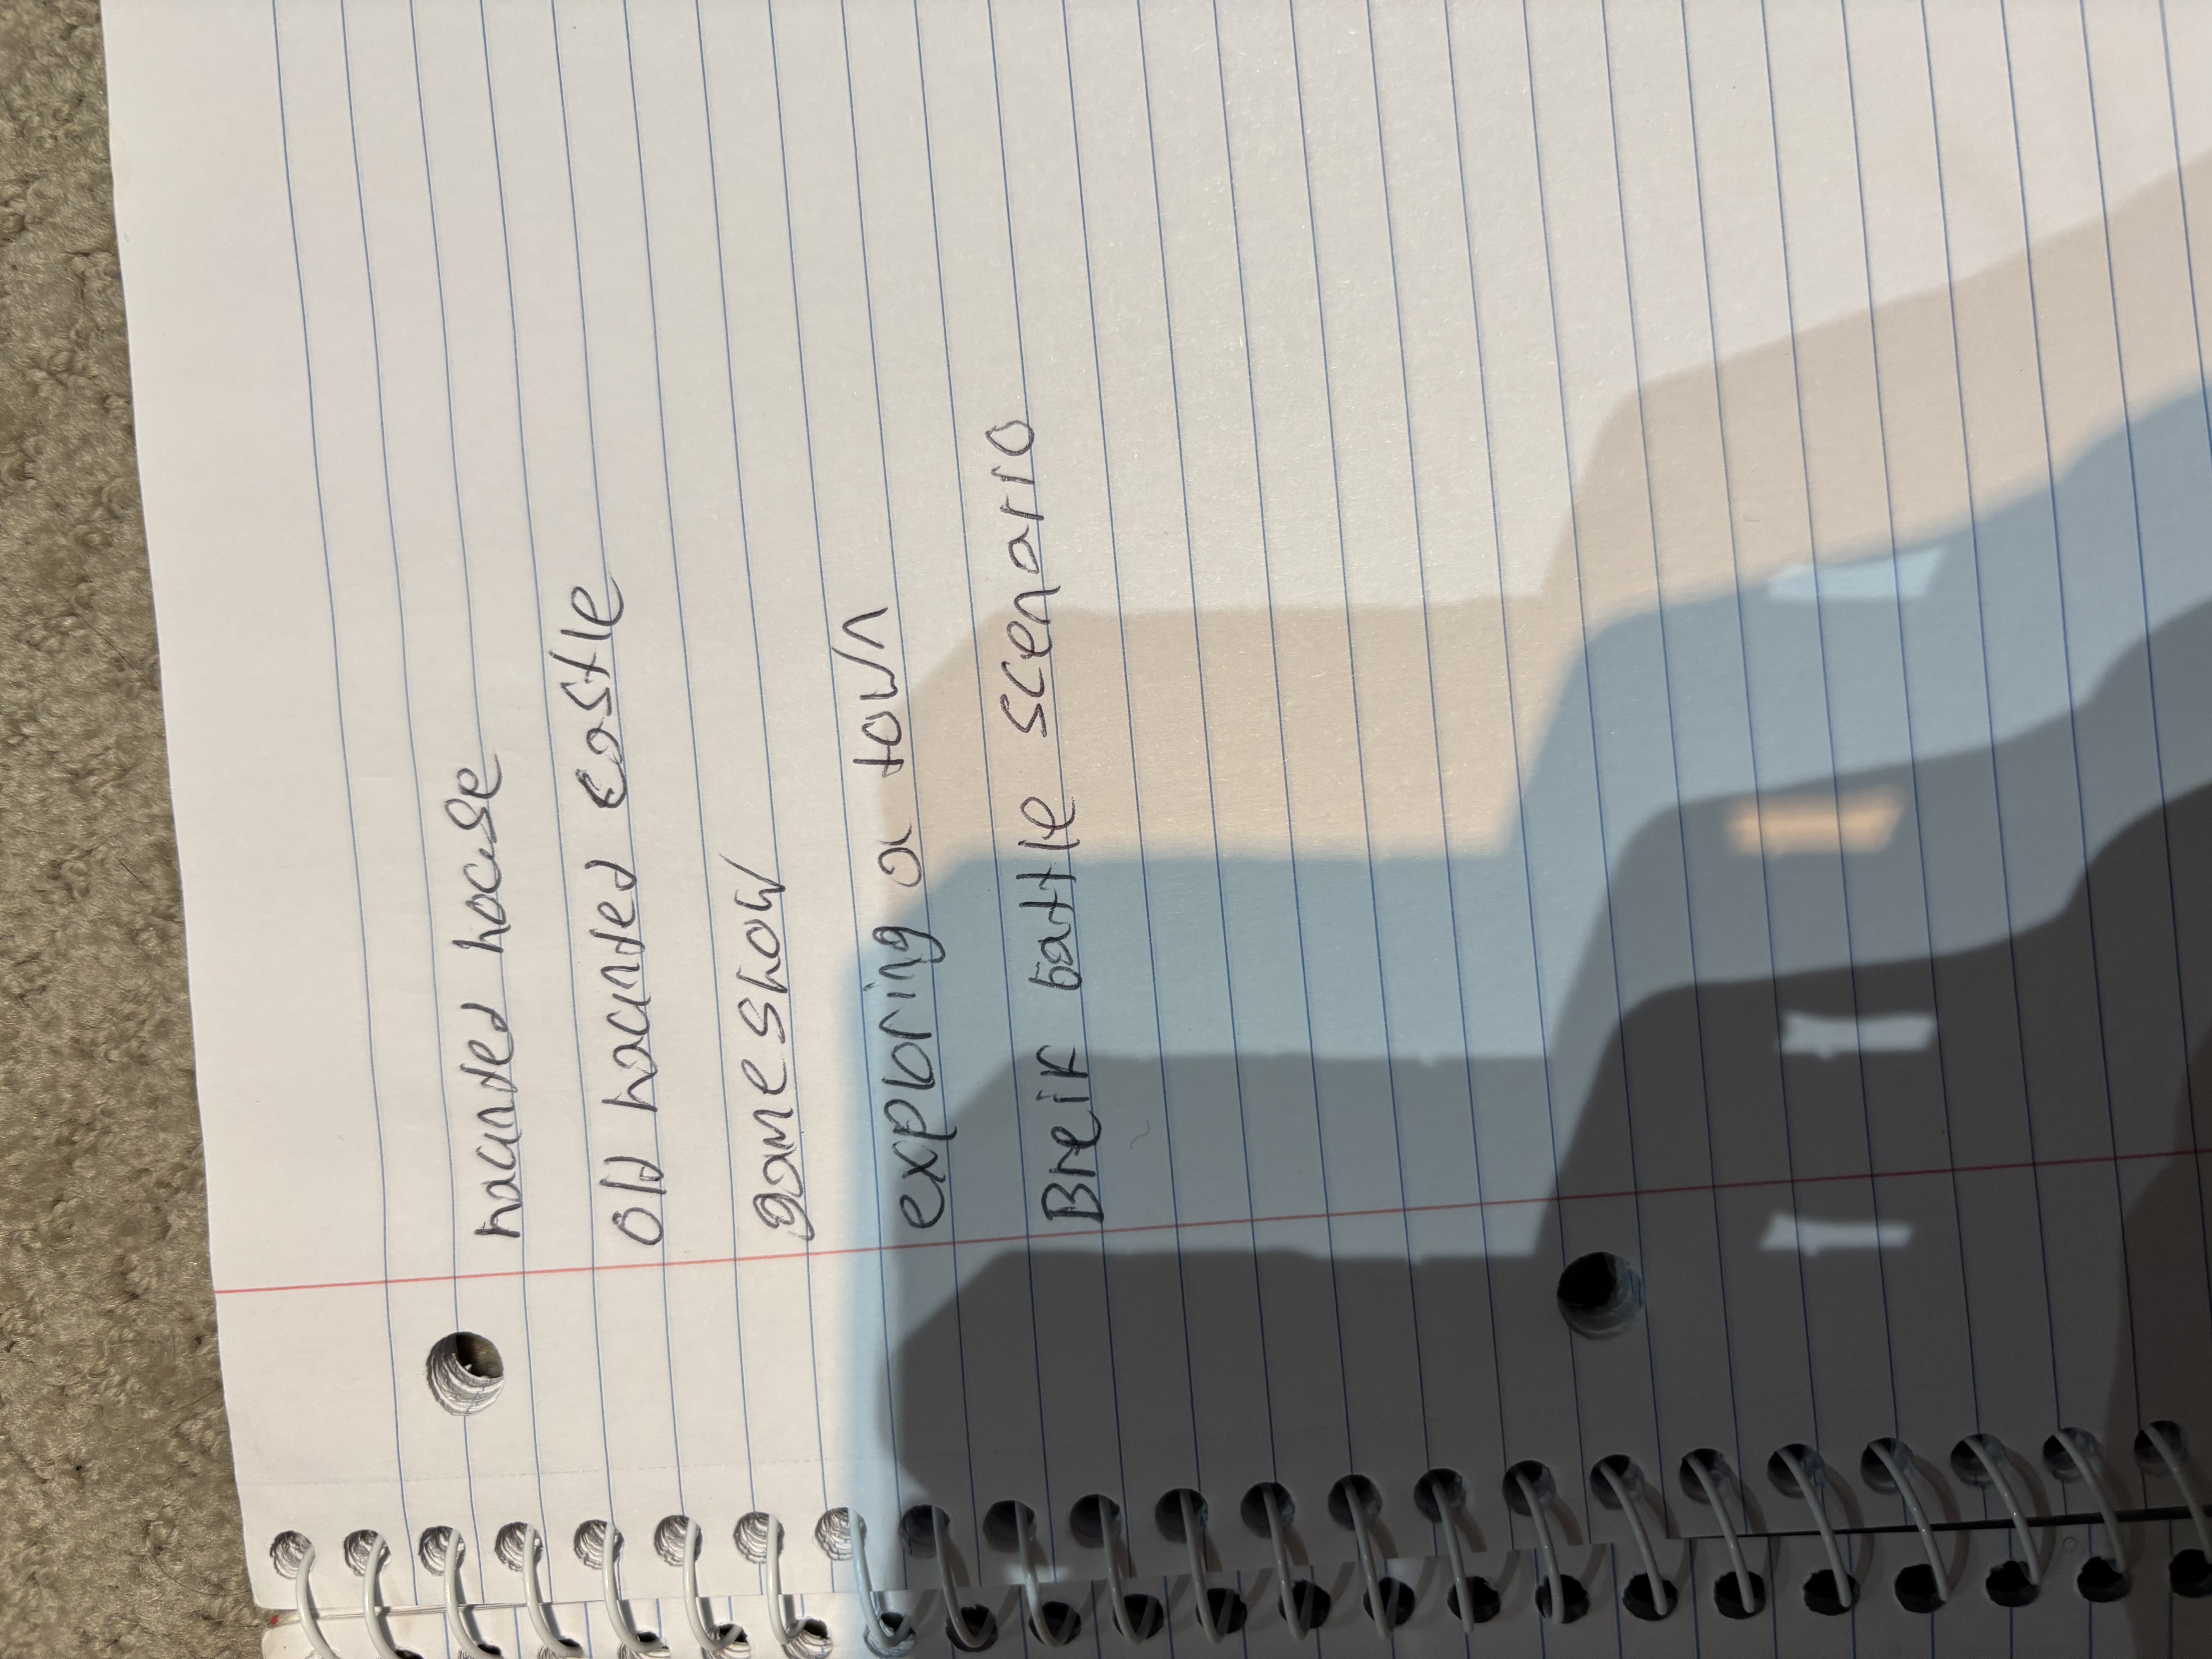 haunted house
old haunted castle
game show
exploring a town
Breif battle scenario